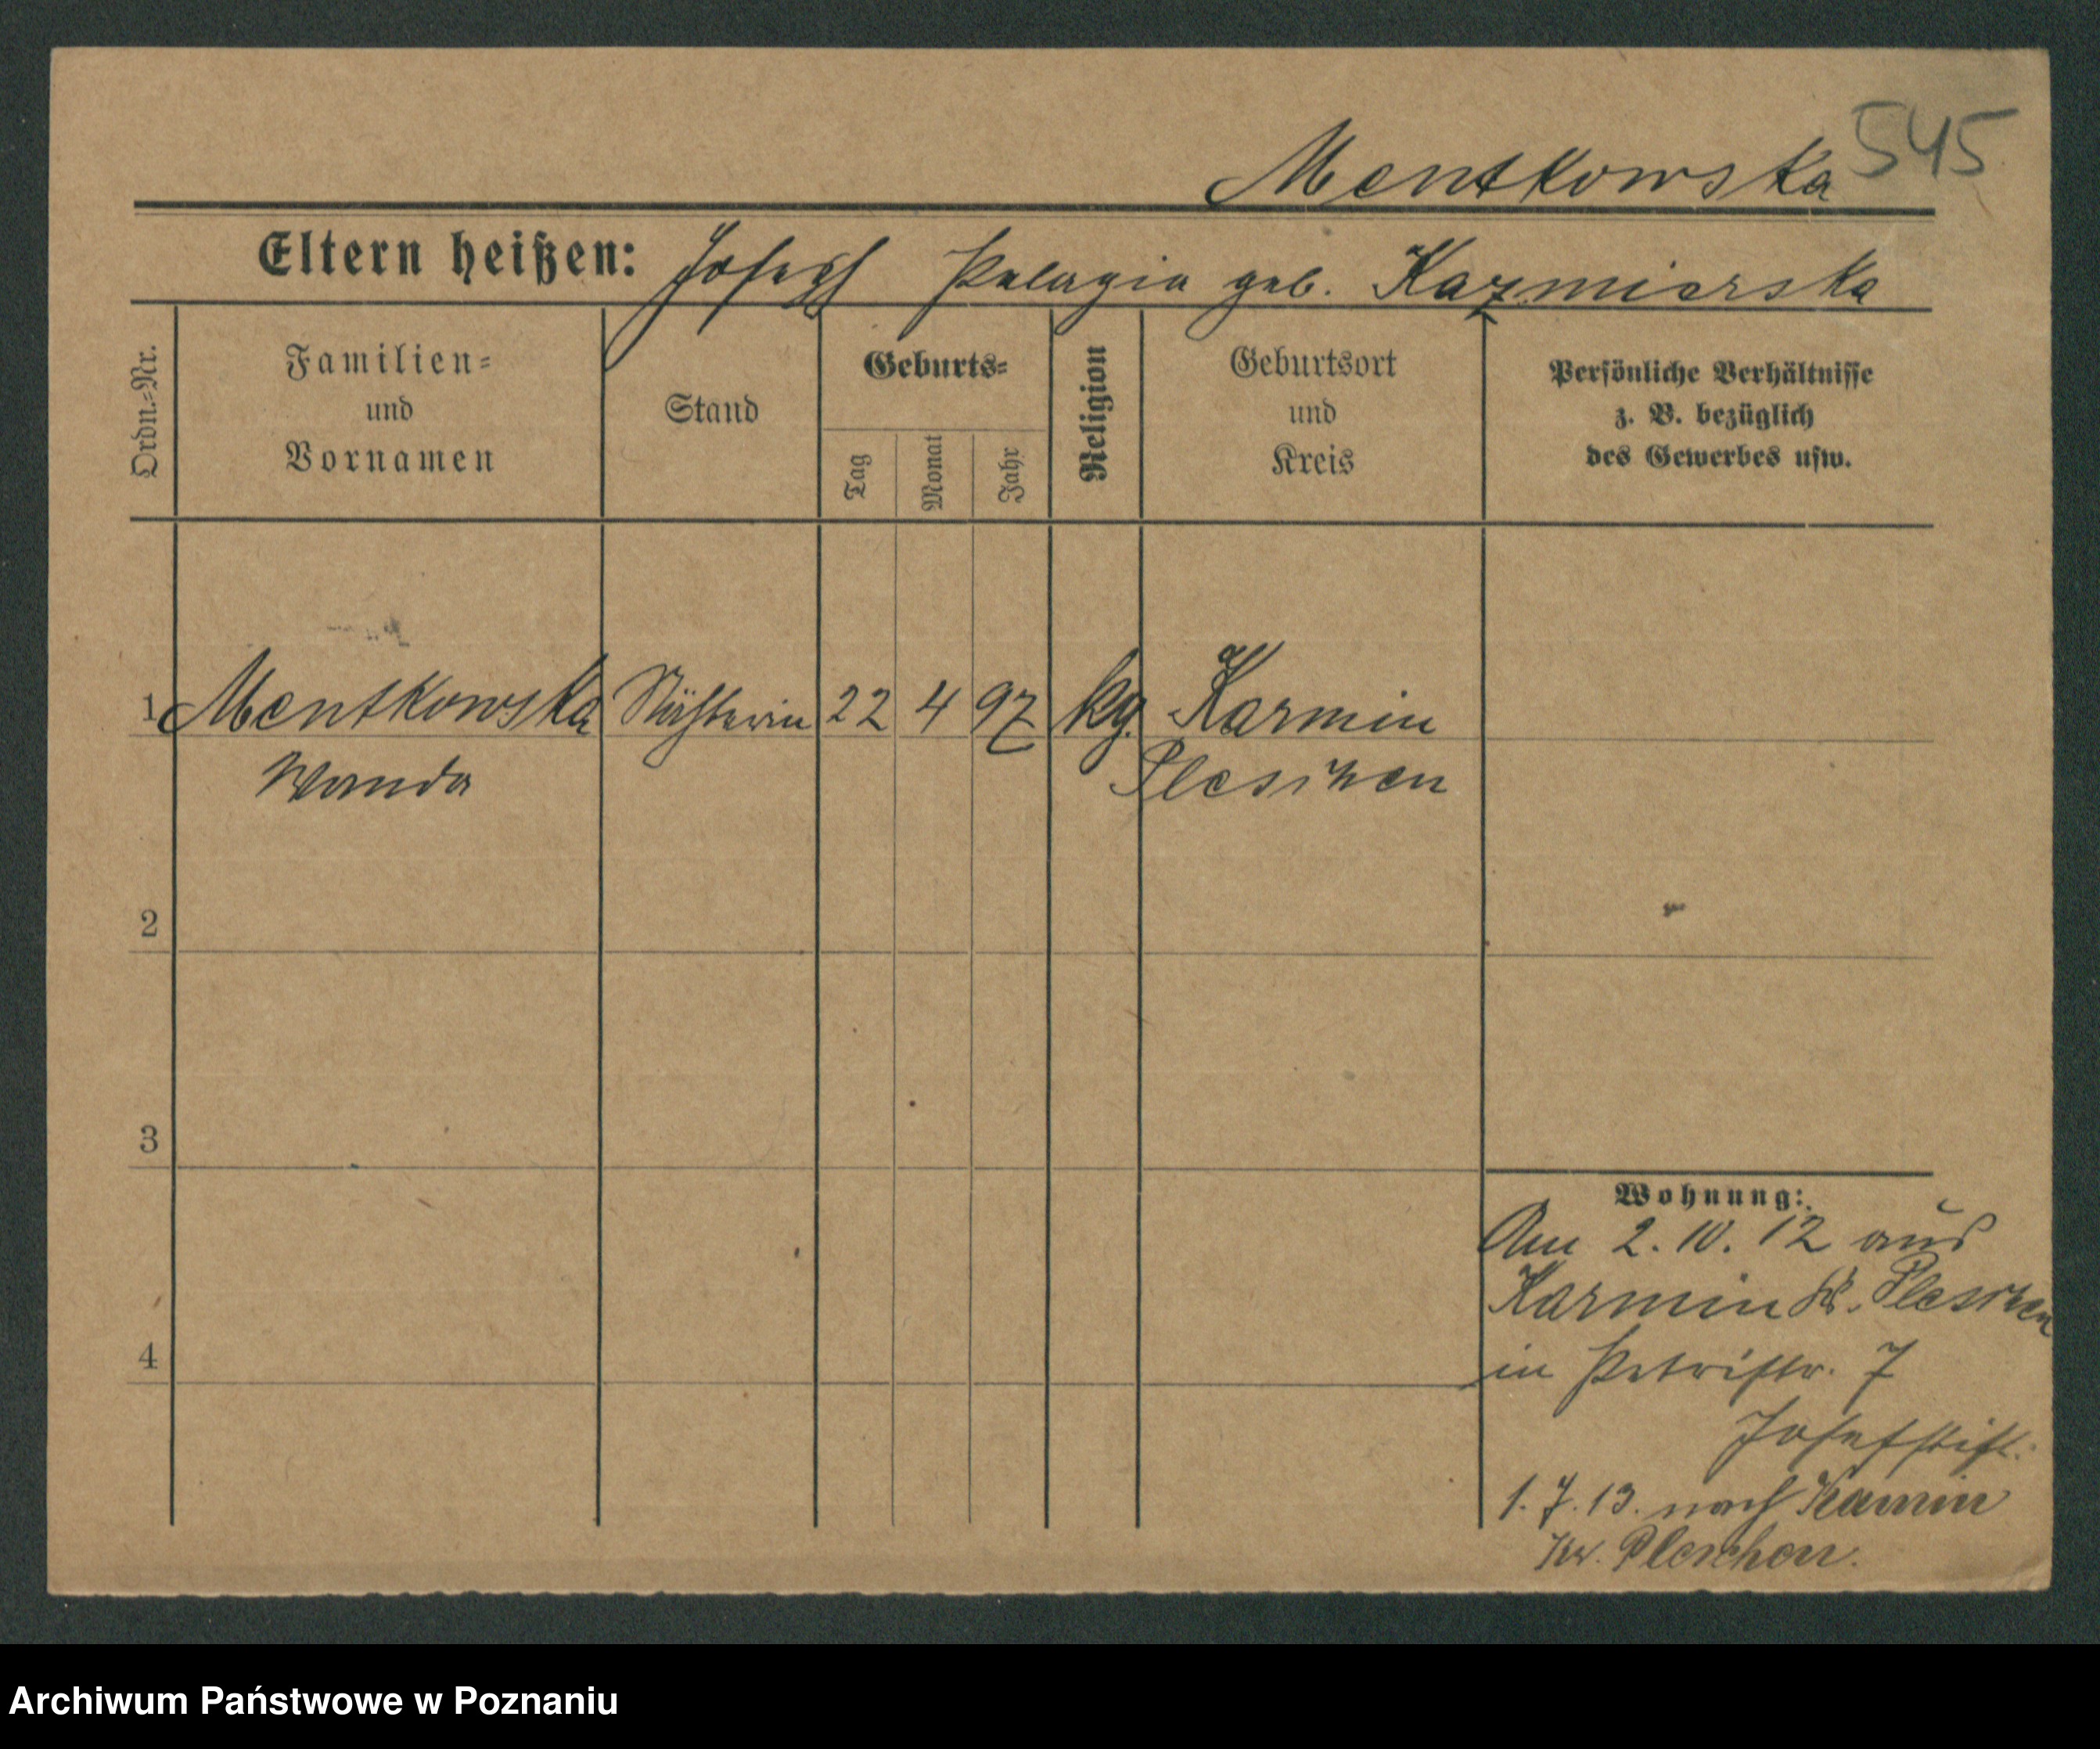 545
Mentkowska
Eltern heißen: Joseph Pelagia geb. Kazmierska
Ordn.-Nr.
Familien-
und
Vornamen
Stand
Geburts-
Tag
Monat
Jahr
Religion
Geburtsort
und
Kreis
Persönliche Verhältnisse
z. B. bezüglich
des Gewerbes usw.
1 Mentkowska 22 4 97 kg. Karmin
Wanda Pleschen
2
3
4
Wohnung:
Am 2. 10. 12 aus
Karmin Kr. Pleschen
in Petristr. 7
Josefstift.
1. 7. 13. nach Kamin
Kr. Pleschen.
Archiwum Państwowe w Poznaniu